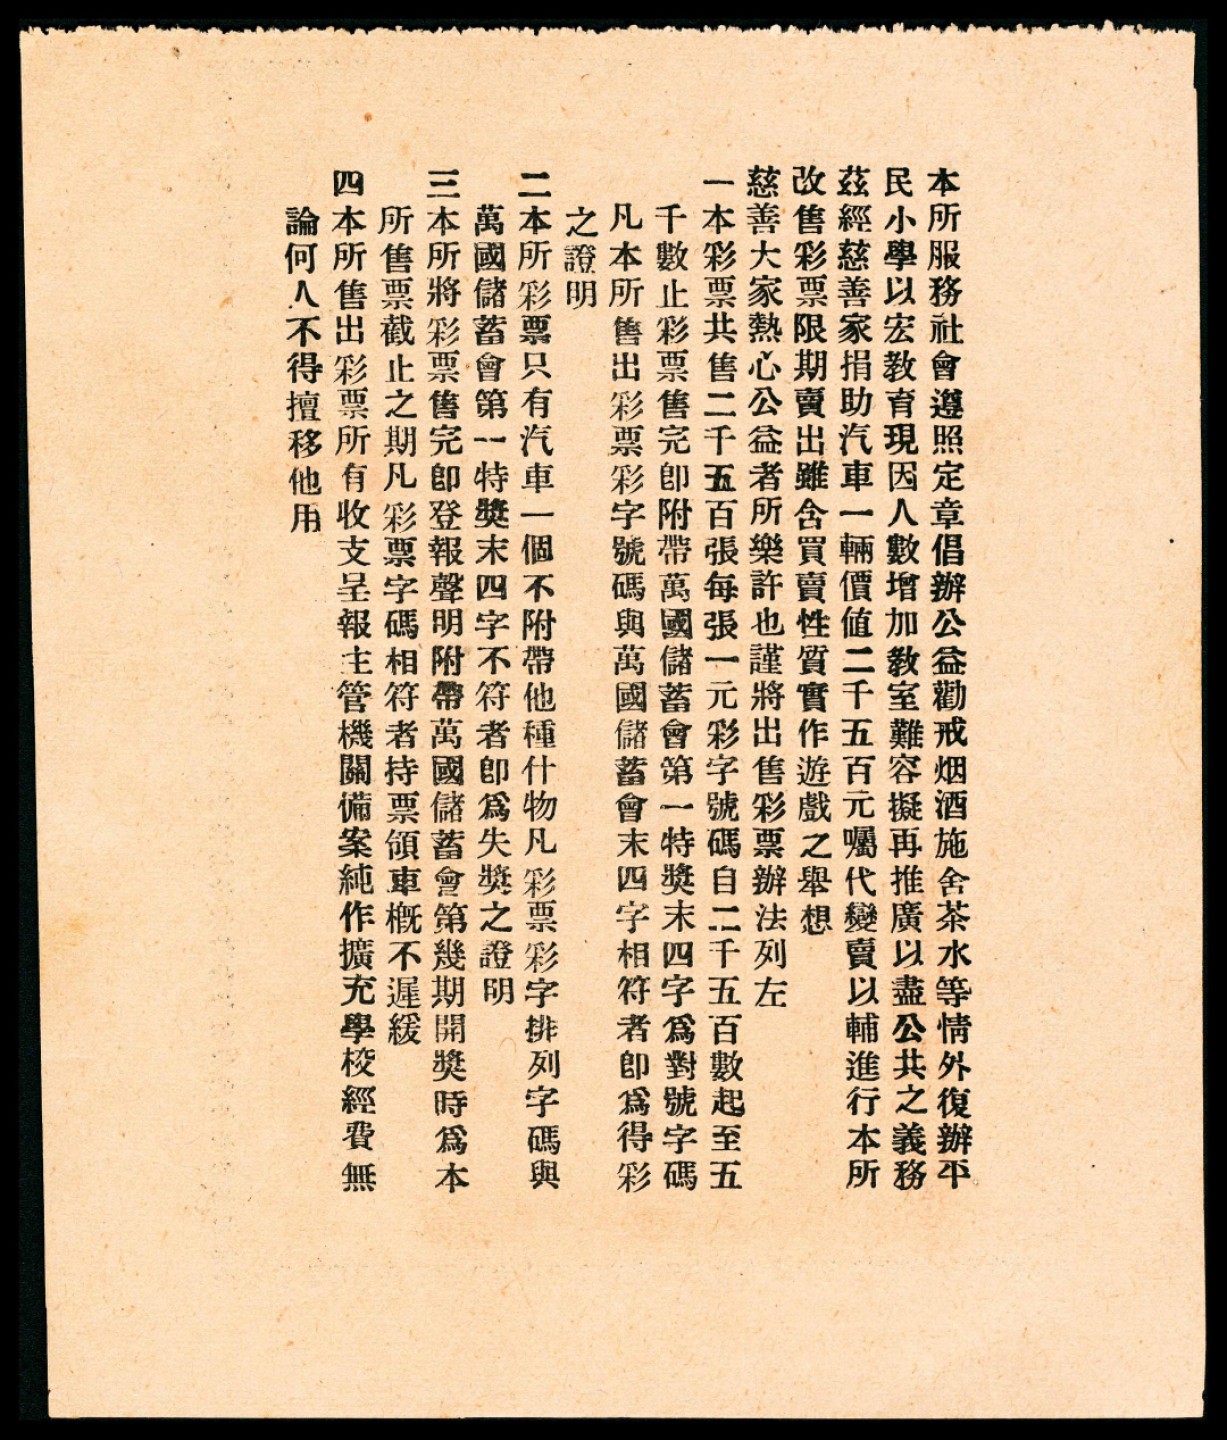 本所服務社會遵照定章倡辦公益勸戒烟酒施舍茶水等情外復辦平
民小學以宏教育現因人數增加教室難容擬再推廣以盡公共之義務
茲經慈善家捐助汽車一輛價值二千五百元囑代變賣以輔進行本所
改售彩票限期賣出雖含買賣性質實作遊戲之舉想
慈善大家熱心公益者所樂許也謹將出售彩票辦法列左
一本彩票共售二千五百張每張一元彩字號碼自二千五百數起至五
千數止彩票售完卽附帶萬國儲蓄會第一特獎末四字爲對號字碼
凡本所售出彩票彩字號碼與萬國儲蓄會末四字相符者卽爲得彩
之證明
二本所彩票只有汽車一個不附帶他種什物凡彩票彩字排列字碼與
萬國儲蓄會第一特獎末四字不符者卽爲失獎之證明
三本所將彩票售完卽登報聲明附帶萬國儲蓄會第幾期開獎時爲本
所售票截止之期凡彩票字碼相符者持票領車槪不遲緩
四本所售出彩票所有收支呈報主管機關備案純作擴充學校經費無
論何人不得擅移他用